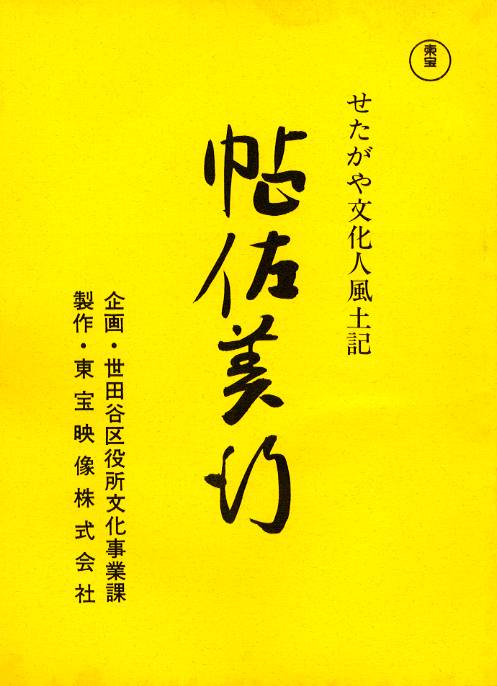 東宝
せたがや文化人風土記
帖佐美行
企画・世田谷区役所文化事業課
製作・東宝映像株式会社